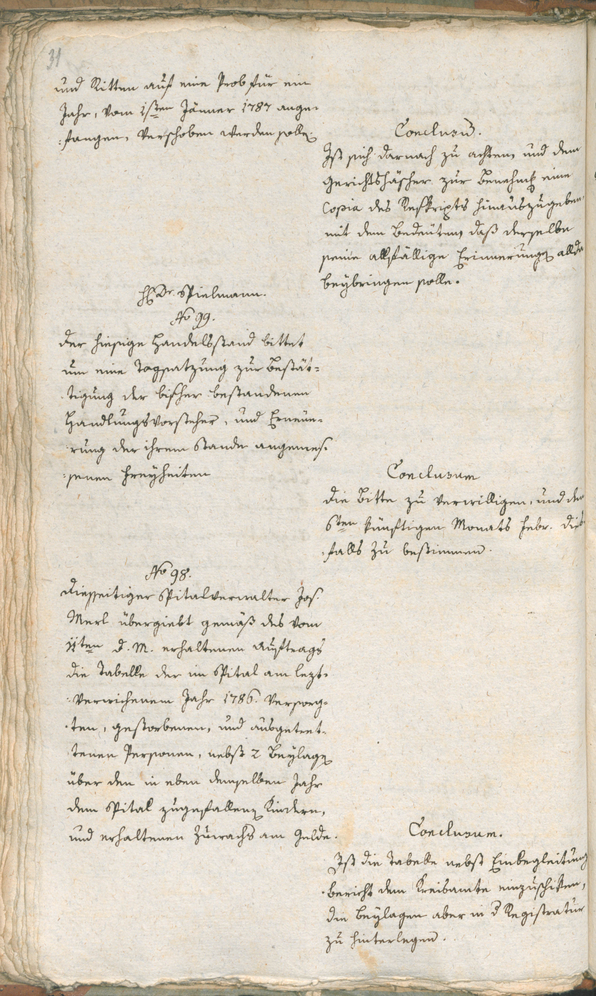 31
und Ritten auf eine Prob für ein
Jahr, vom 1sten Jänner 1787 ange¬
fangen, verschoben werden solle.
Conclusum.
Ist sich darnach zu achten, und dem
Gerichtskasser zur Benehmung eine
Copia des Reskripts hinauszugeben
mit dem Bedeuten, daß derselbe
seine allfällige Erinnerungen allda
beybringen solle.
Spielmann.
No 99.
Der hiesige Handelsstand bittet
um eine Tagsatzung zur Bestät¬
tigung der bisher bestandenen
Handlungsvorsteher, und Erneue¬
rung der ihrem Stande angemes¬
senen Freyheiten
Conclusum
Die Bitte zu verwilligen, und der
6ten künftigen Monats Febr. dies¬
falls zu bestimmen.
No 98.
Diesseitiger Spitalverwalter Jos.
Merl übergiebt gemäß des vom
11ten d. M. erhaltenen Auftrags
die Tabelle der im Spital am lezt¬
verwichenem Jahr 1786. versorg¬
ten, gestorbenen, und ausgetret¬
tenen Personen, nebst 2 Beylagen
über den in eben demselben Jahr
dem Spital zugefallenen Kindern,
und erhaltenen Zuwachs am Gelde.
Conclusum.
Ist die Tabelle nebst Einbegleitung
bericht dem Kreisamte einzuschicken,
die Beylagen aber in d Registratur
zu hinterlegen.